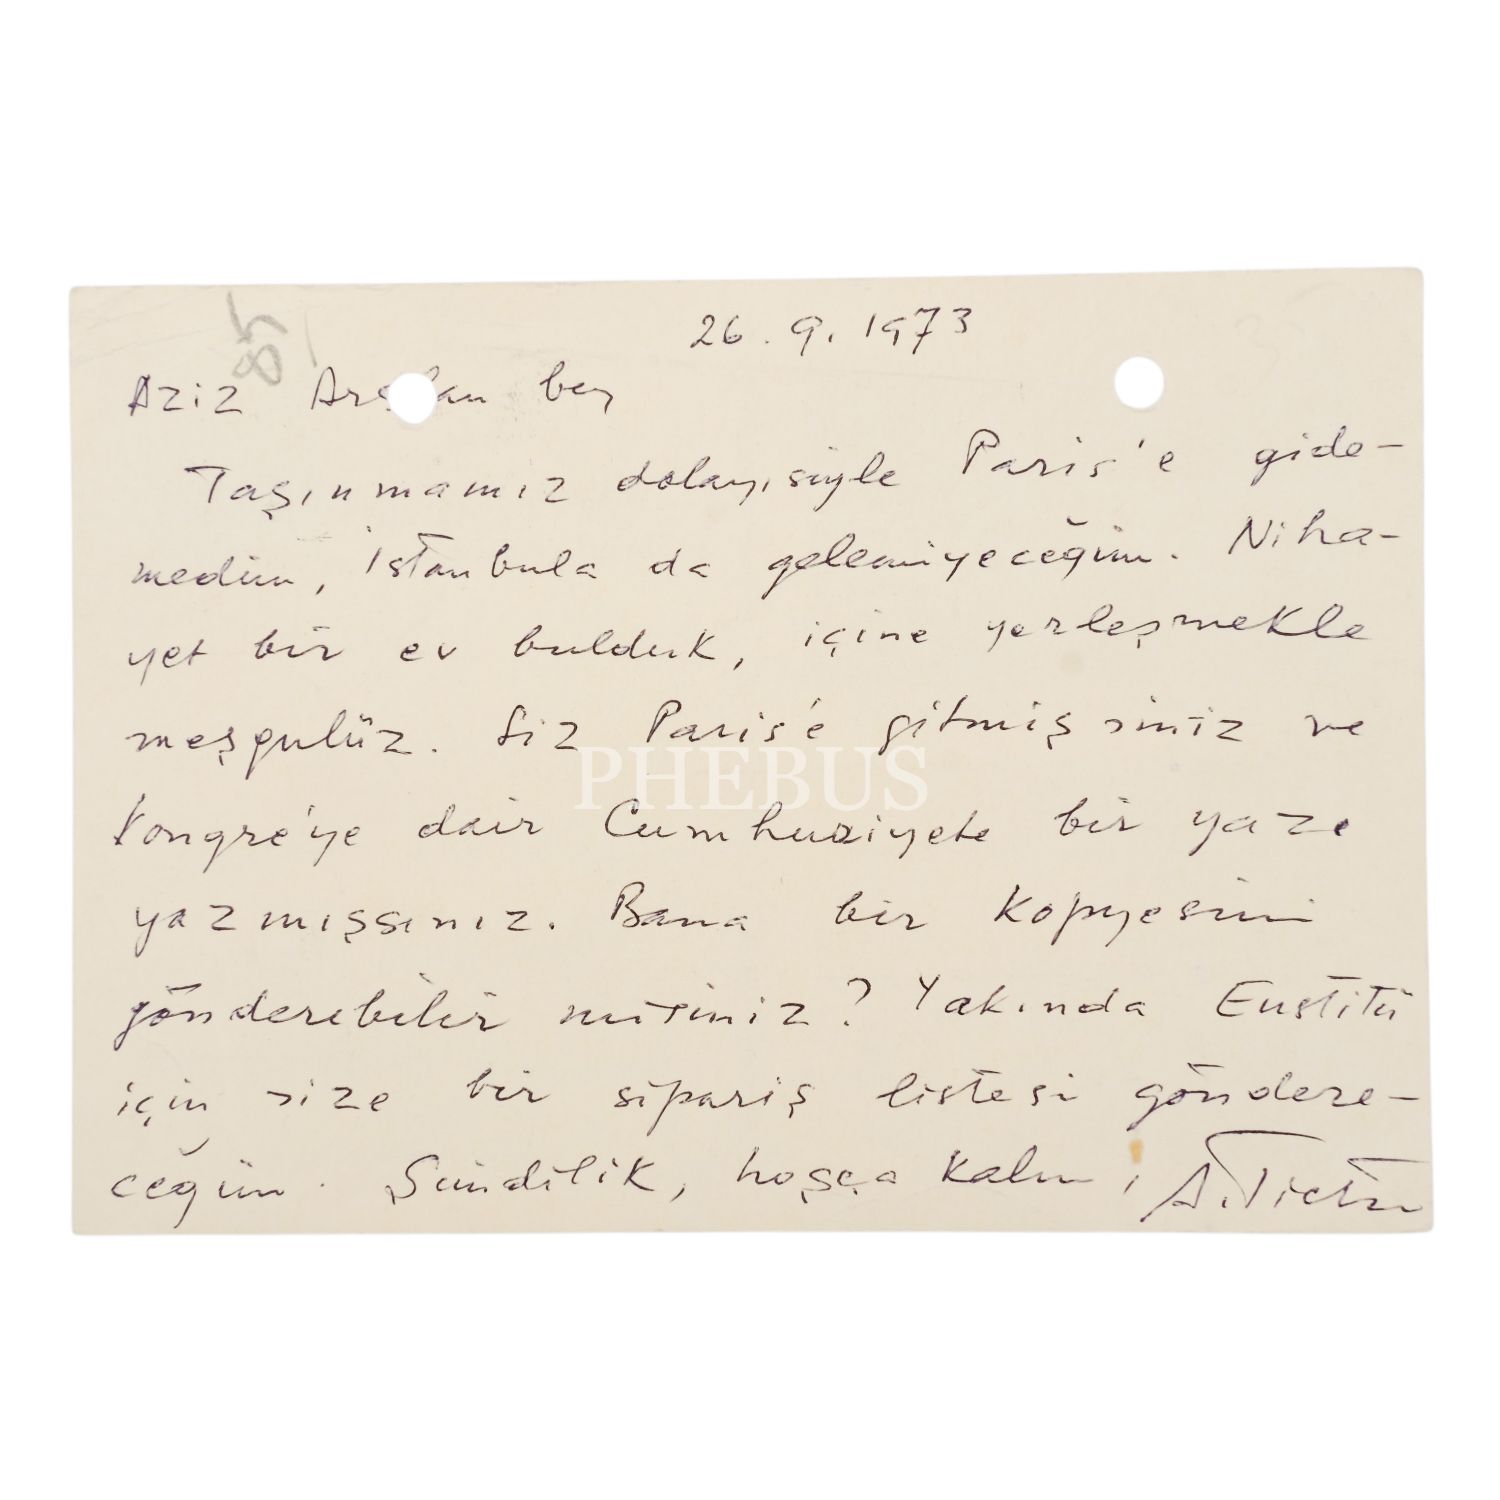 85
26.9.1973
Aziz Arslan bey
Taşınmamız dolayısiyle Paris'e gide-
medim, İstanbula da gelemiyeceğim. Niha-
yet bir ev bulduk, içine yerleşmekle
meşgulüz. Siz Paris'e gitmişsiniz ve
PHEBUS
Kongre'ye dair Cumhuriyete bir yazı
yazmışsınız. Bana bir kopyesini
gönderebilir misiniz? Yakında Enstitü
için size bir sipariş listesi göndere-
ceğim. Şimdilik, hoşça kalın! A. Tietze